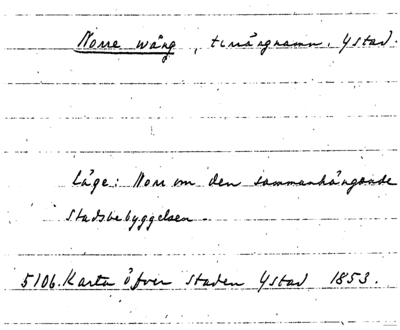 Norre wång, t. vångnamn. Ystad.
Läge: Norr om den sammanhängande
stadsbebyggelsen.
5106. Karta öfver staden Ystad 1853.